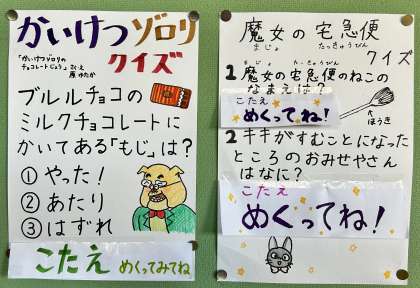 かいけつゾロリ
クイズ
「かいけつゾロリの
チョコレートじょう」さくえ
原 ゆたか
ブルルチョコの
ミルクチョコレートに
かいてある「もじ」は?
① やった!
② あたり
③ はずれ
こたえ めくってみてね
魔女の宅急便
まじょ たっきゅうびん
クイズ
まじょ たっきゅうびん
1 魔女の宅急便のねこの
なまえは?
こたえ
めくってね!
ほうき
2 キキがすむことになった
ところのおみせやさん
はなに?
こたえ
めくってね!